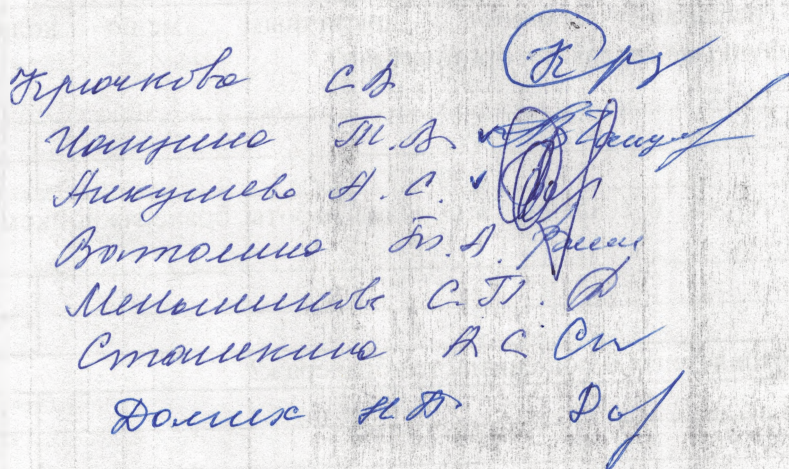 Крючкова С В
Чащина Т. В.
Анкушева А. С.
Ватолина Т. А.
Меньшикова С. П.
Сташкина А С
Долих Н В